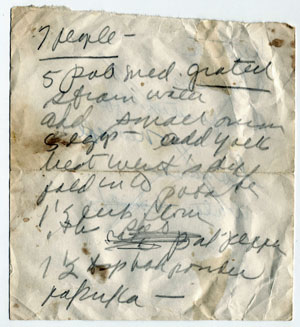 7 people -
5 pot med. grated
strain water
add small onion
eggs - add yolk
beat whites stiff
fold into potatoe
1/2 cup flour
1 1/2 tsp bak powder
paprika -